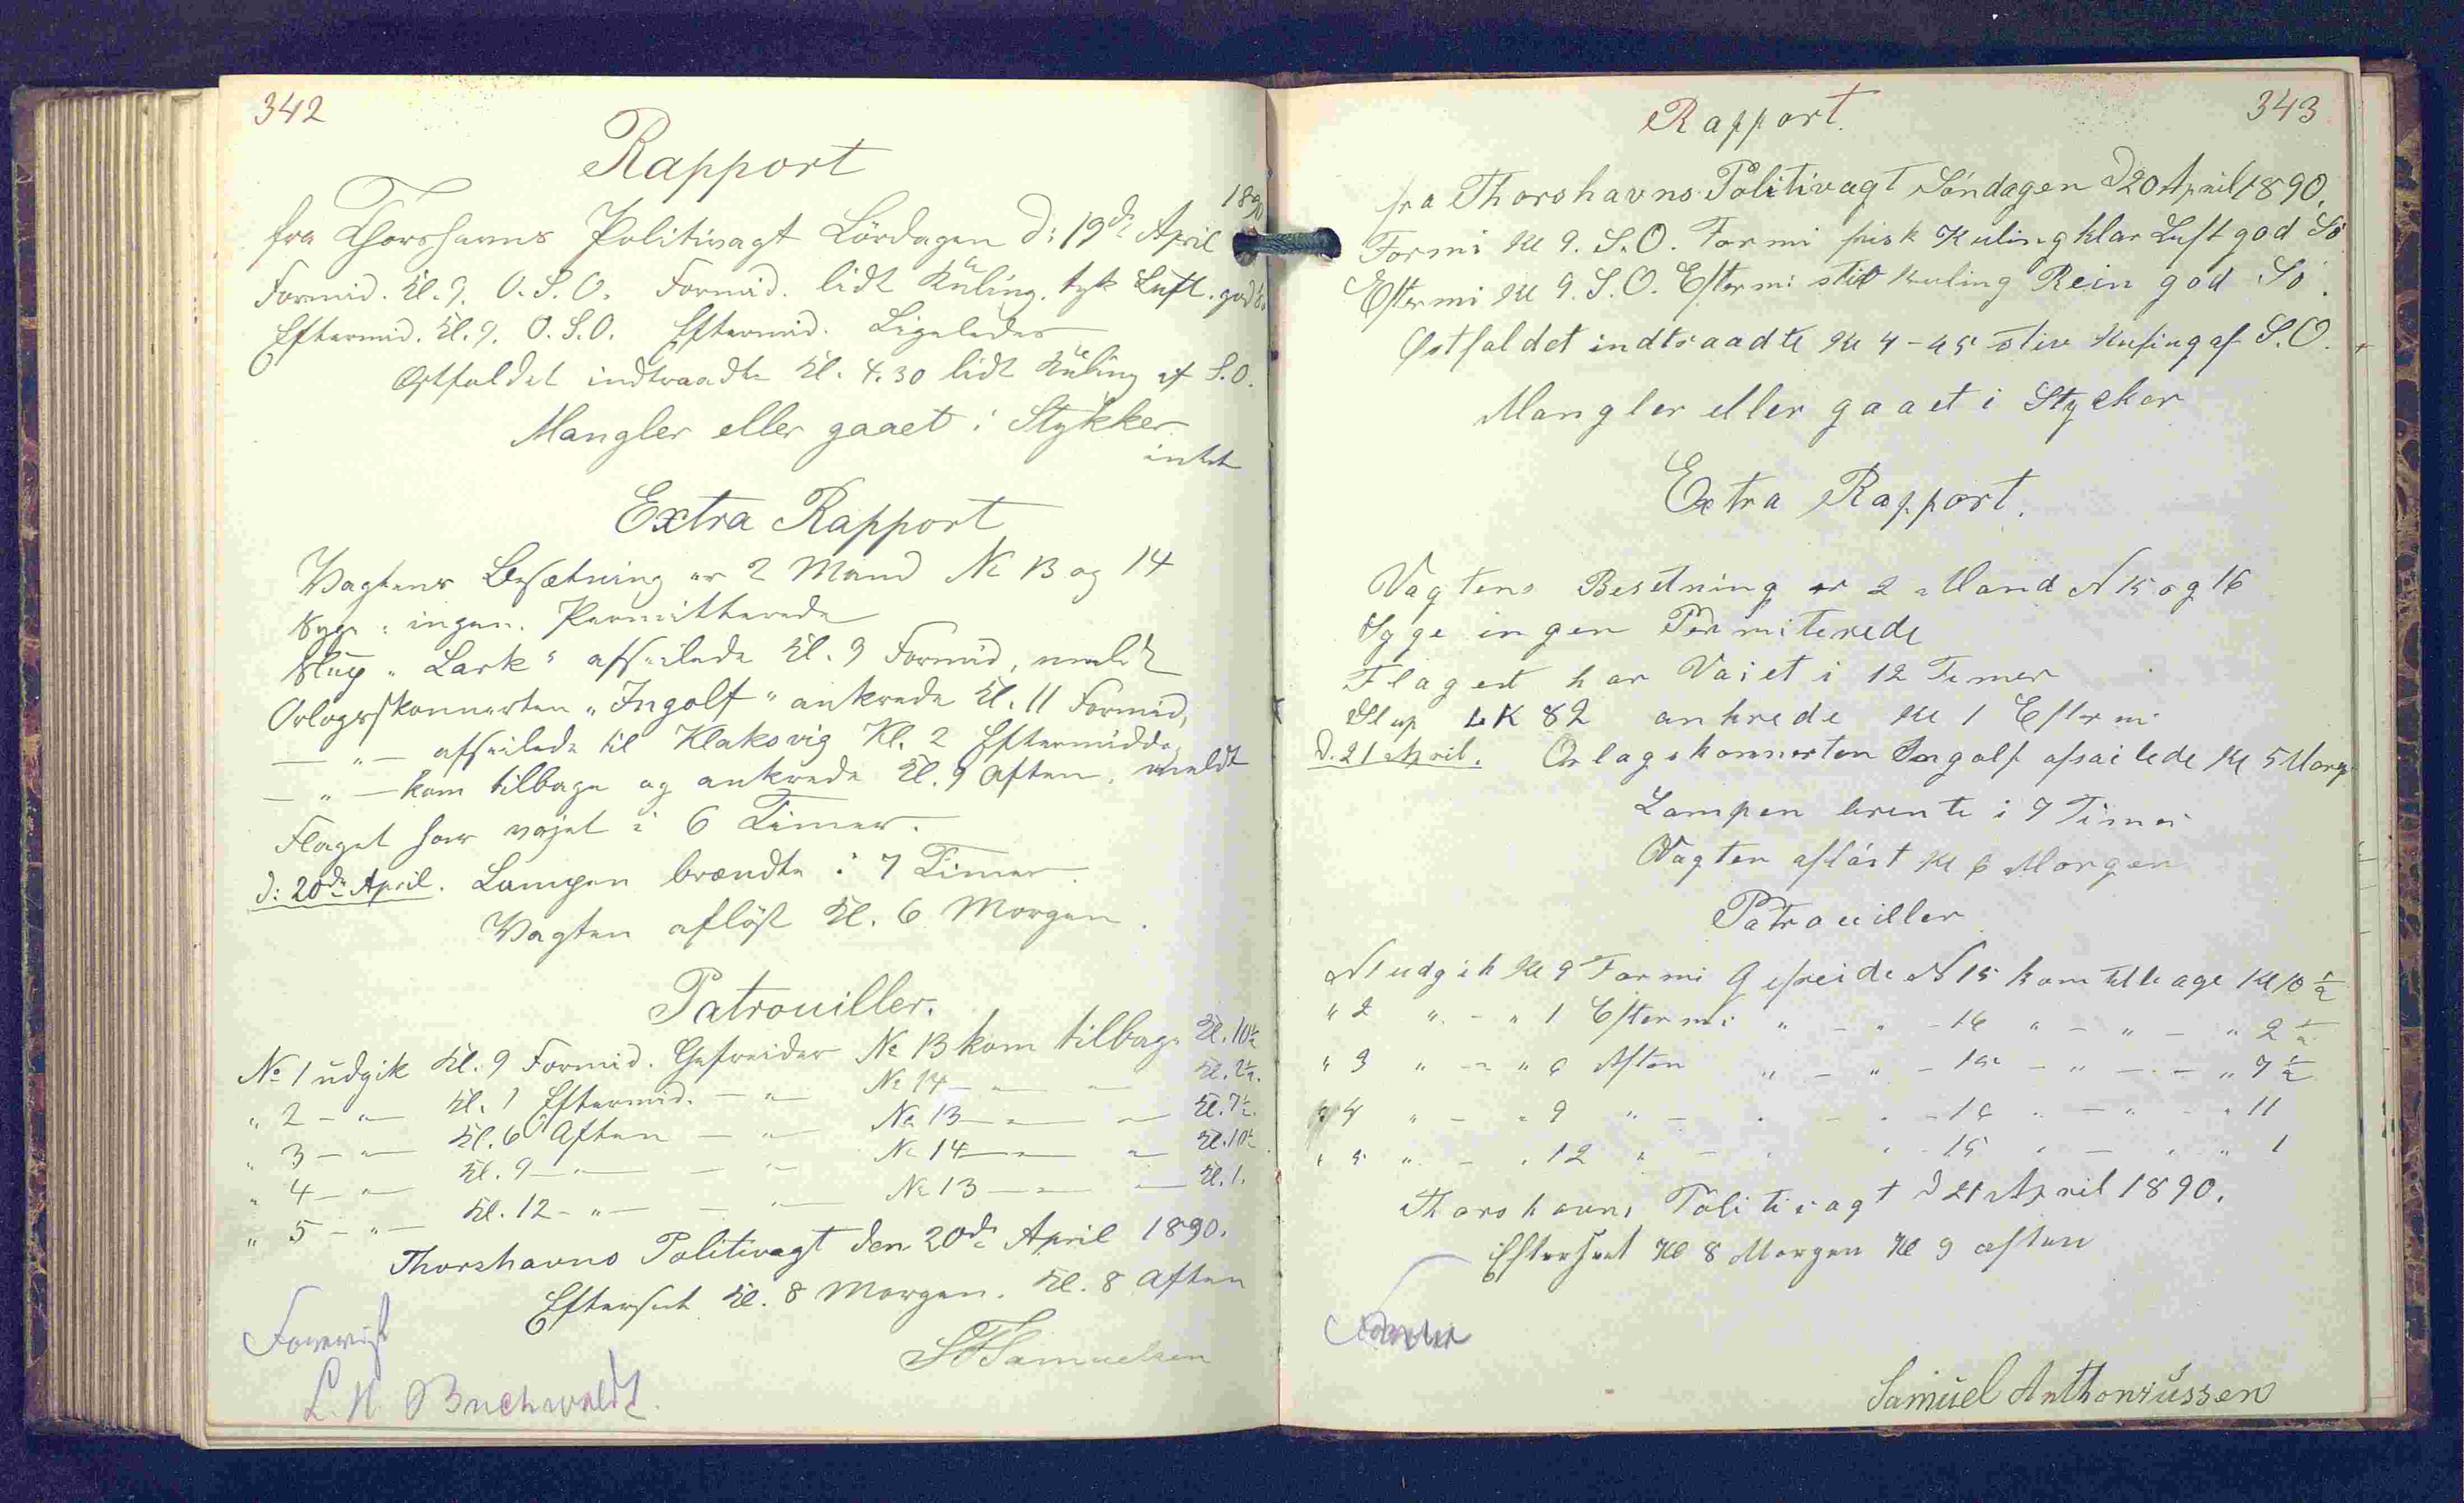 342
Rapport
fra Thorshavns Politivagt Lördagen d: 19de April 1890
Formid. Kl. 9. O.S.O. Formid. lidt Kuling. tyk Luft. god Sö
Eftermid. Kl. 9. O.S.O. Eftermid. Ligeledes
Østfaldet indtraadte Kl. 4.30 lidt Kuling af S.O.
Mangler eller gaaet i Stykker
intet
Extra Rapport
Vagtens Besætning er 2 Mand No 13 og 14
Syge: ingen. Permitterede
Slup "Lark" afseilede Kl. 9 Formid, meldt
Orlogsskonnerten "Ingolf" ankrede Kl. 11 Formid,
— " — afseilede til Klaksvig Kl. 2 Eftermiddag
— " — kom tilbage og ankrede Kl. 9 Aften, meldt
Flaget har vajet i 6 Timer.
d: 20de April. Lampen brændte i 7 Timer.
Vagten aflöst Kl. 6 Morgen.
Patrouiller.
No 1 udgik Kl. 9 Formid. Gefreider No 13 kom tilbage Kl. 10½
" 2 — " — Kl. 1 Eftermid. — " — No 14 — " — Kl. 2½.
" 3 — " — Kl. 6 Aften — " — No 13 — " — Kl. 7½.
" 4 — " — Kl. 9 — " — — " — No 14 — " — Kl. 10½
" 5 — " — Kl. 12 — " — — " — No 13 — " — Kl. 1.
Thorshavns Politivagt den 20de April 1890.
Efterset Kl. 8 Morgen. Kl. 8 Aften
Samuelsen
Forevist
L. N. Buchwaldt.
343
Rapport.
fra Thorshavns Politivagt Söndagen d 20 April 1890.
Formi Kl 9. S.O. Formi frisk Kuling klar Luft god Sö
Eftermi Kl 9. S.O. Eftermi stiv Kuling Rein god Sö.
Østfaldet indtraadte Kl 4-45 stiv Kuling af S.O.
Mangler eller gaaet i Stycker
Extra Rapport.
Vagtens Besetning er 2 Mand N 15 og 16
Syge ingen Permiterede
Flaget har Vaiet i 12 Timer
Slup LK 82 ankrede Kl 1 Eftermi
d. 21 April. Orlagskonnerten Ingolf afsailede Kl 5 Morg
Lampen brente i 7 Timer
Vagten aflöst Kl 6 Morgen
Patrouiller
N 1 udgik Kl 9 Formi Gefreide N 15 kom tilbage Kl 10 ½
" 2 " - " 1 Eftermi " - " - 16 " - " - " 2 ½
" 3 " - " 6 Aften " - " - 15 - " - - " 7 ½
" 4 " - " 9 " - " - " - 16 " - " - " 11
" 5 " - " 12 " - " " - 15 " - " " 1
Thorshavns Politivagt d 21 April 1890.
Efterseet Kl 8 Morgen Kl 9 aften
Samüel Anthoniüssen